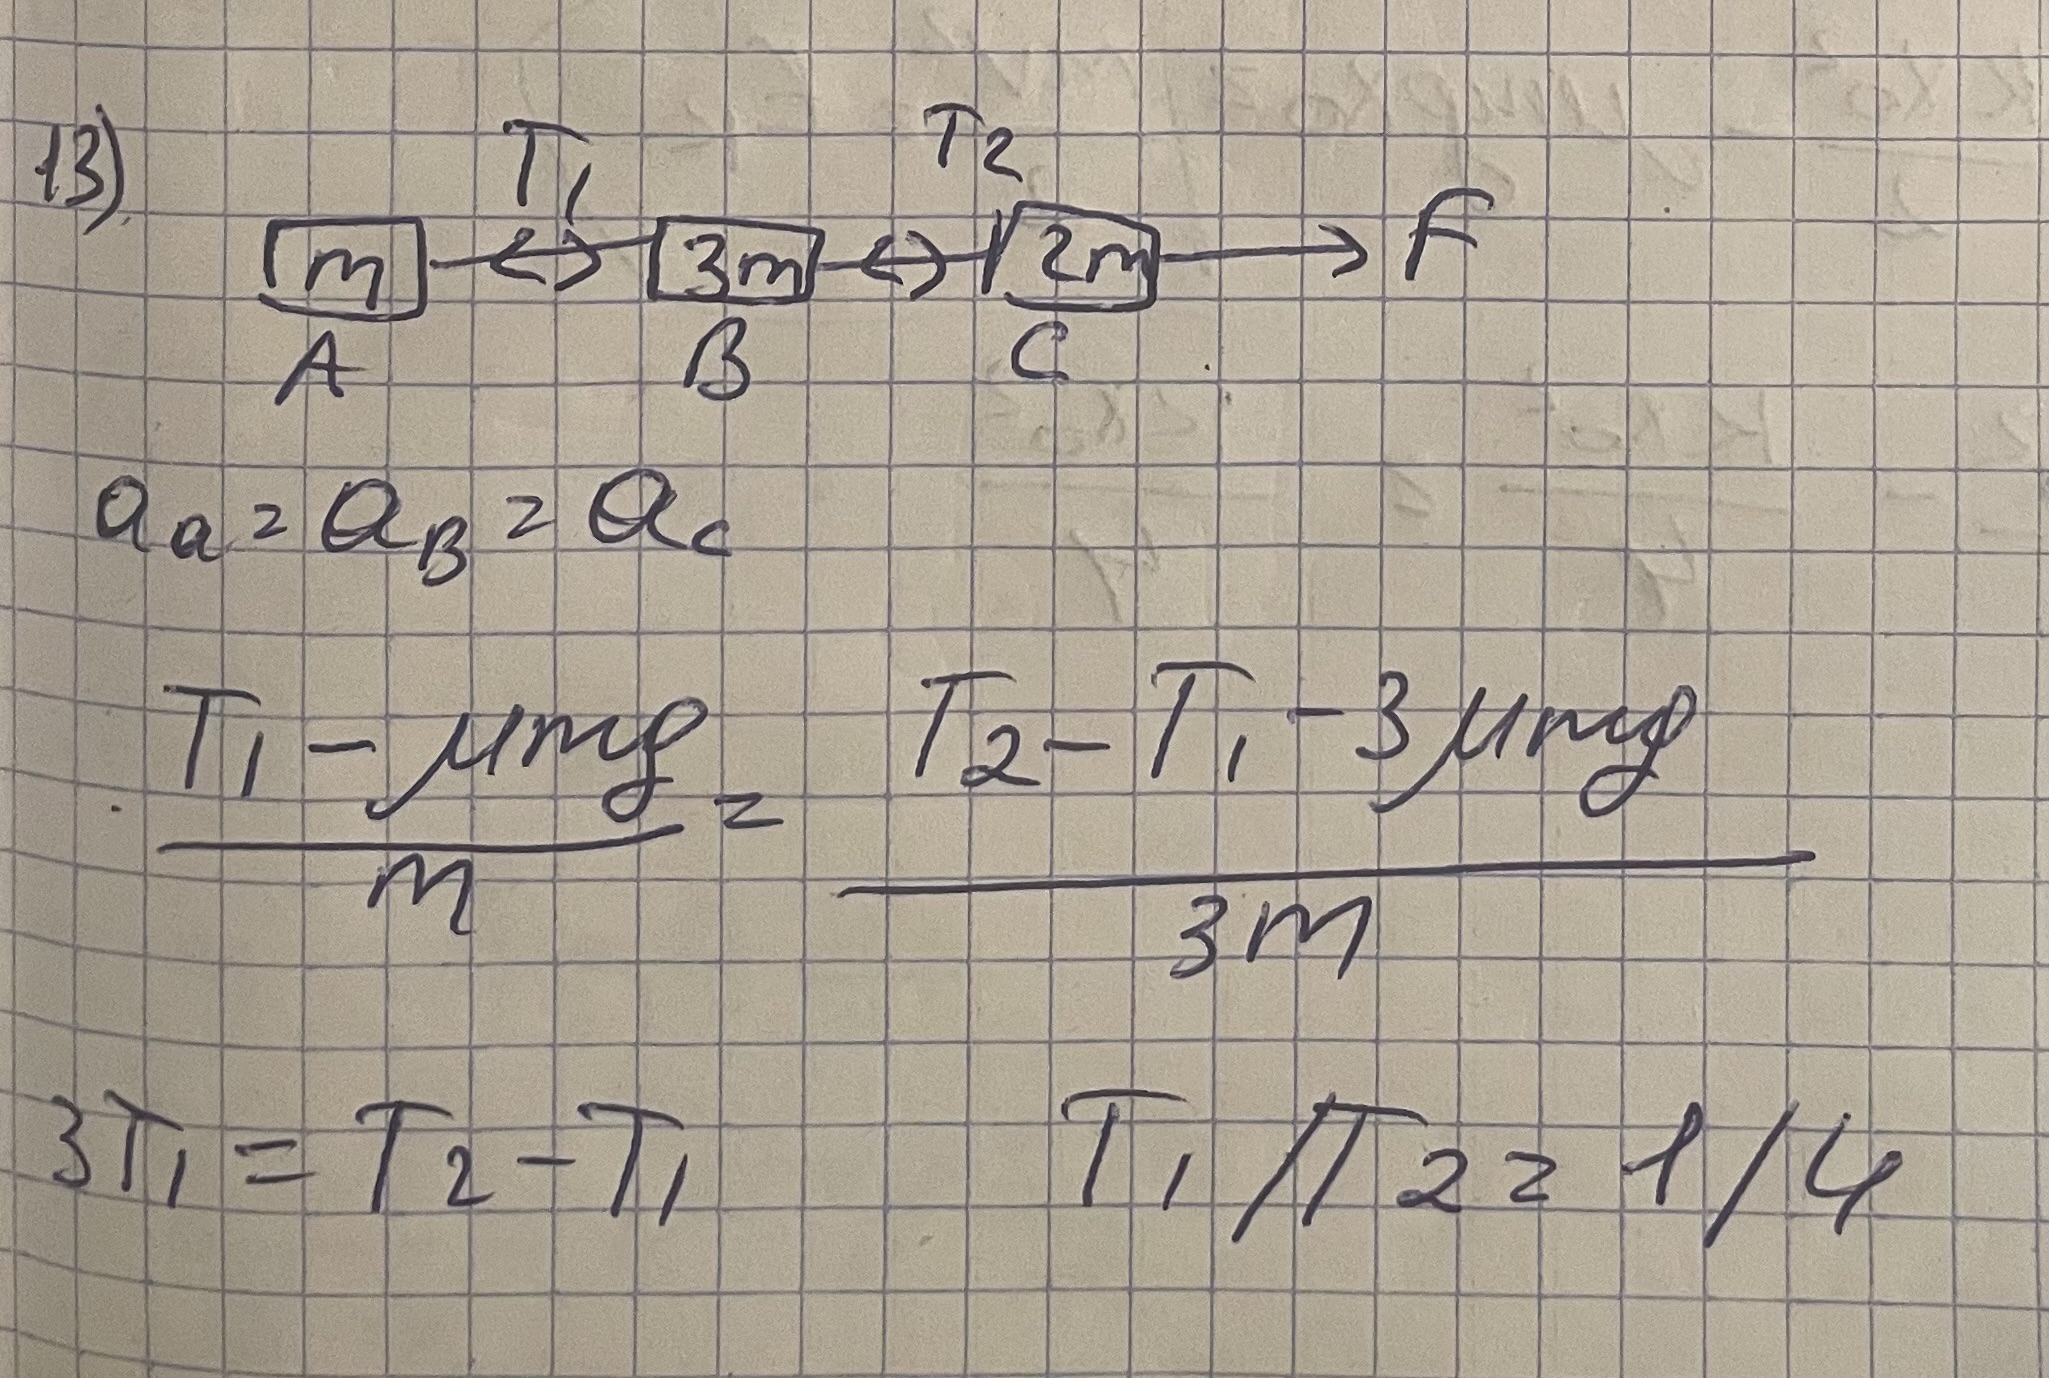 13)
T₁ T₂
m 3m 2m F
A B C
aₐ = a_B = a_c
T₁ - μmg / m = T₂ - T₁ - 3μmg / 3m
3T₁ = T₂ - T₁ T₁/T₂ = 1/4